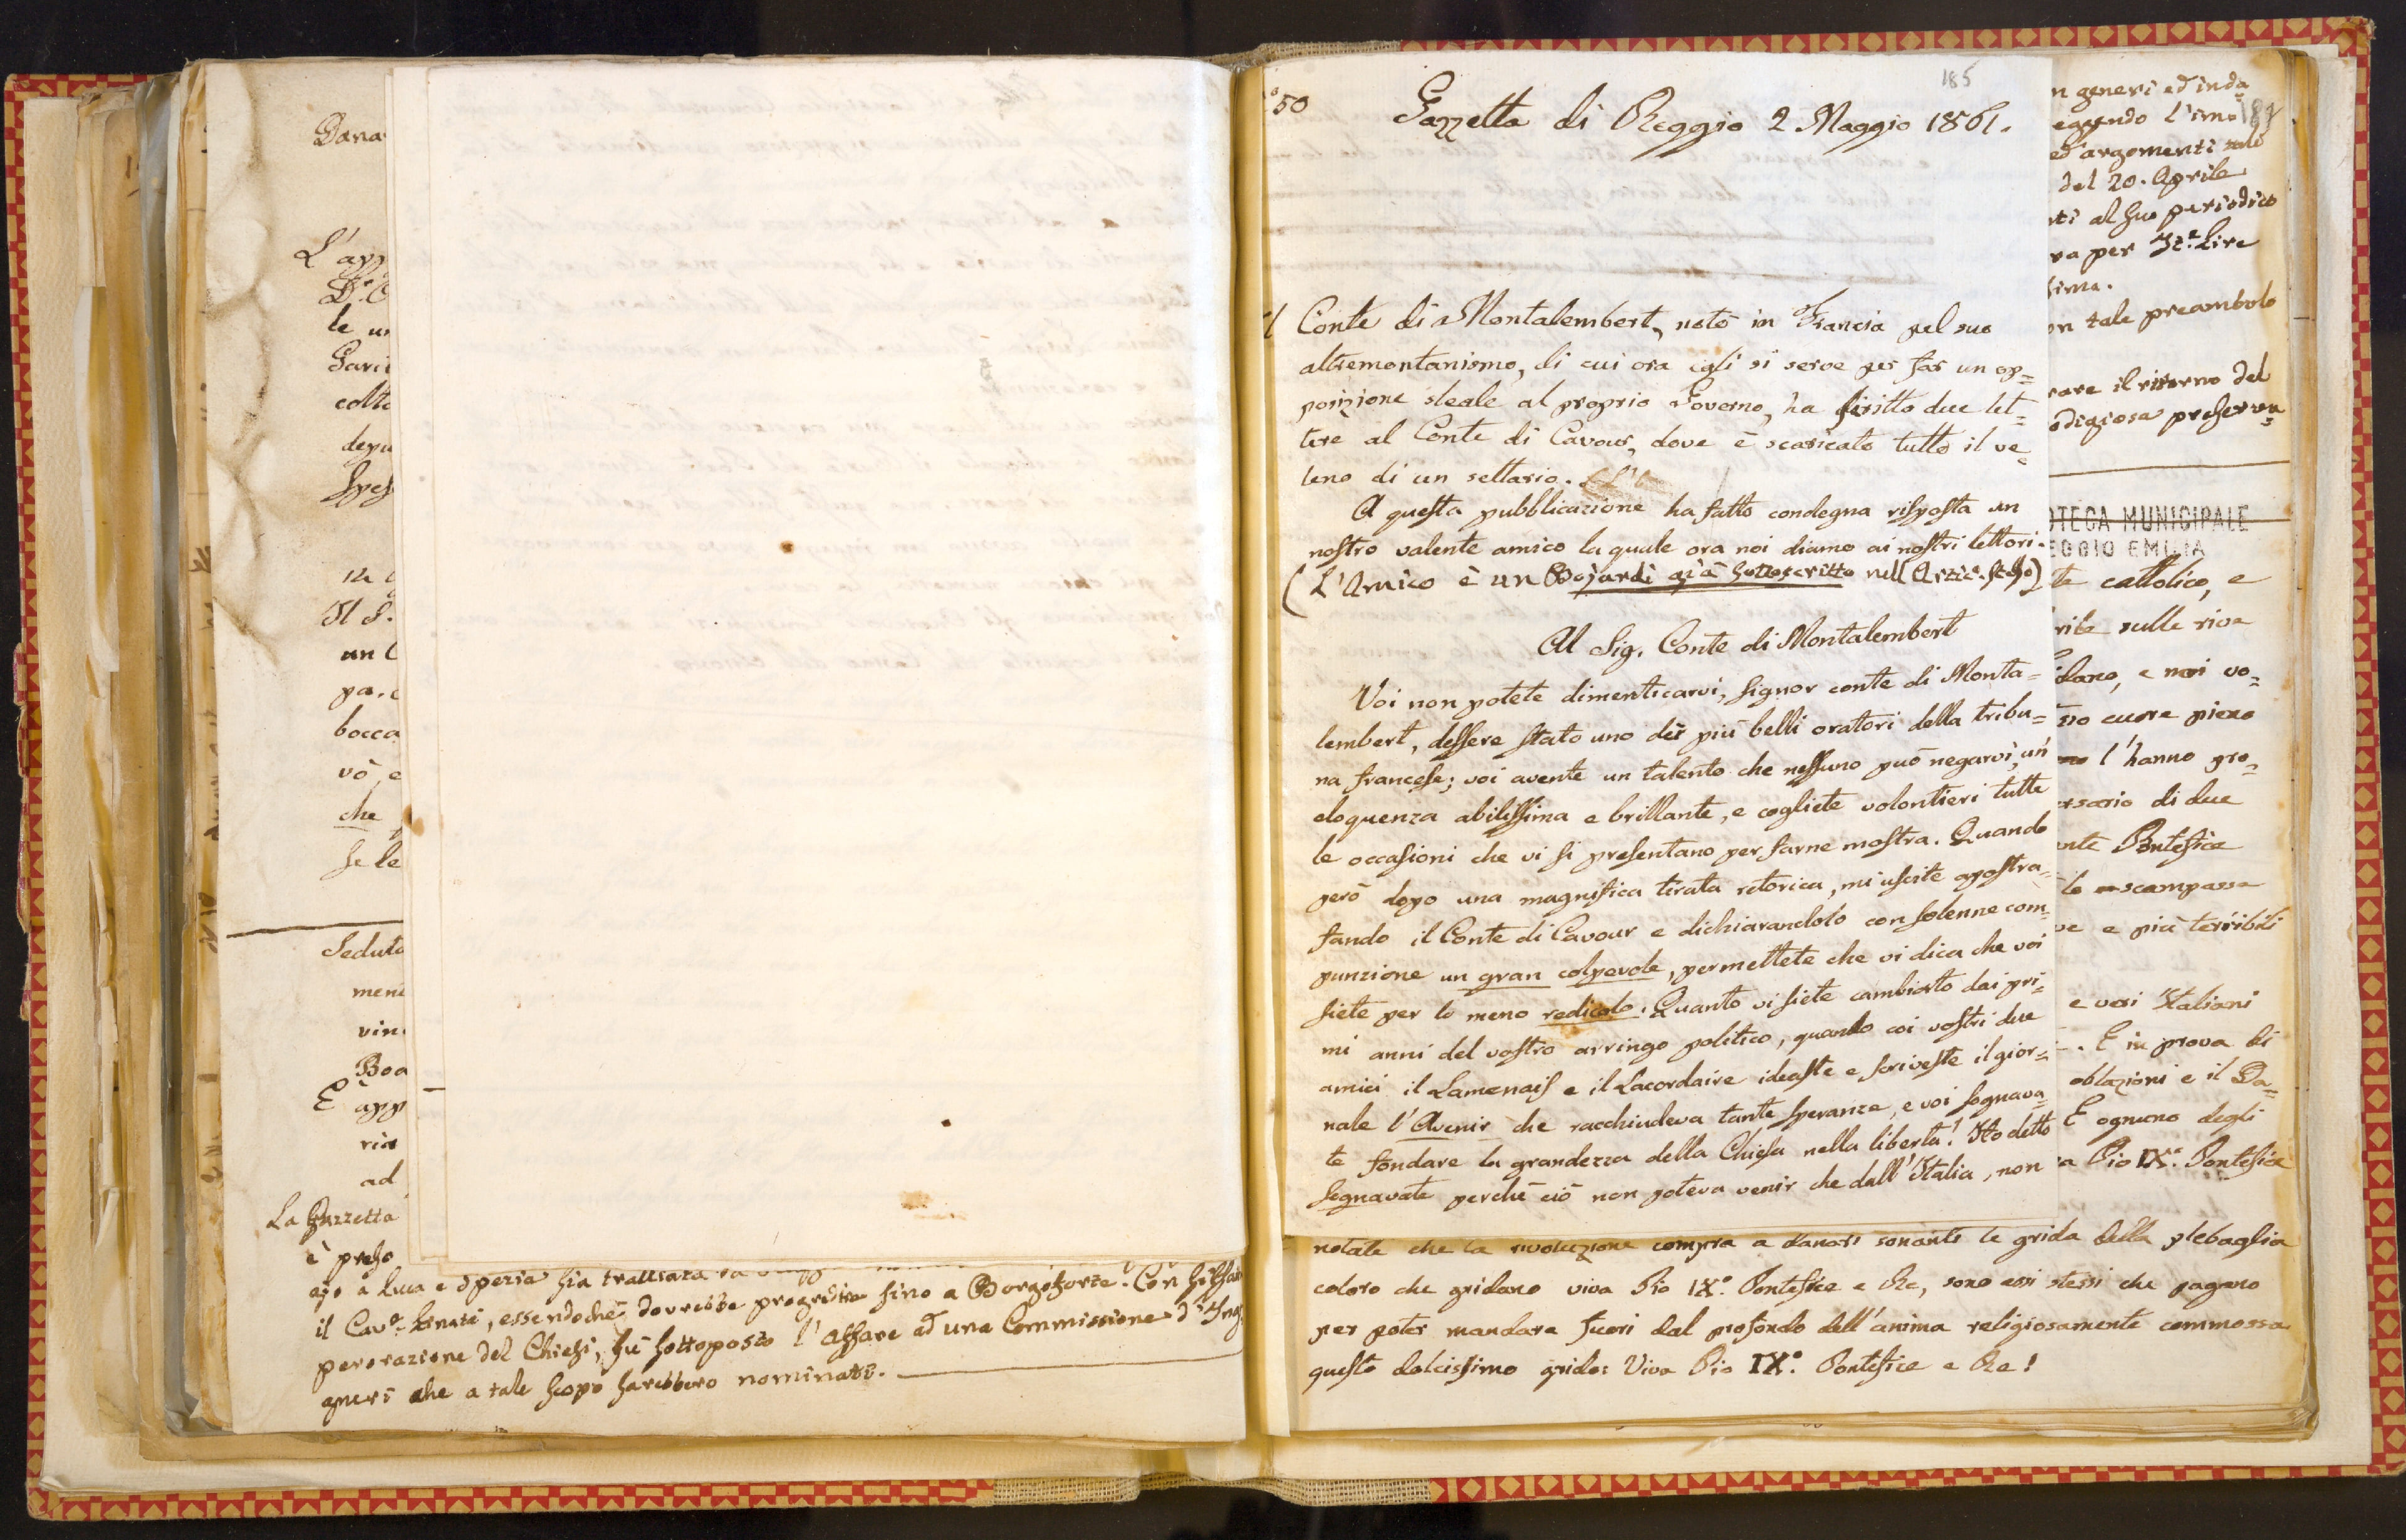 Dana
L'app
D.r C
le un
Gari
colto
depu
Spes
in
Il S.
un C
pa. c
bocca
vò, e
che
se le
Seduta
meni
vin
Boa
È app
ria
ad
La Gazzetta
è preso
a Luca e Sperzia sia
il Cav.e Linati, essendoché dovrebbe progredire fino a Borgoforte. Con
perorazione del Chiesi, fù sottoposto l'affare ad una Commissione d'Ing
gneri che a tale scopo sarebbero nominati.
185
50
Gazzetta di Reggio 2 Maggio 1861.
l Conte di Montalembert, noto in Francia pel suo
altremontanismo, di cui ora egli si serve per far un op=
posizione sleale al proprio Governo, ha scritto due let=
tere al Conte di Cavour, dove è scaricato tutto il ve=
leno di un settario.
A questa pubblicazione ha fatto condegna risposta un
nostro valente amico la quale ora noi diamo ai nostri lettori.
(L'Amico è un Bojardi già sottoscritto nell'Artic.o stesso)
Al Sig. Conte di Montalembert
Voi non potete dimenticarvi, signor conte di Monta=
lembert, d'essere stato uno dei più belli oratori della tribu=
na francese; voi avente un talento che nessuno può negarvi, un'
eloquenza abilissima e brillante, e cogliete volontieri tutte
le occasioni che vi si presentano per farne mostra. Quando
però dopo una magnifica tirata retorica, mi uscite apostra=
fando il Conte di Cavour e dichiarandolo con solenne com=
punzione un gran colpevole, permettete che vi dica che voi
siete per lo meno redicolo. Quanto vi siete cambiato dai pri=
mi anni del vostro arringo politico, quando coi vostri due
amici il Lamenais e il Lacordaire ideaste e scriveste il gior=
nale l'Avenir che racchiudeva tante speranze, e voi sognava=
te fondare la grandezza della Chiesa nella libertà! Ho detto
segnavate perchè ciò non poteva venir che dall'Italia, non
n generi ed inda=
eggendo l'imo
187
ed argomenti
del 20. Aprile
ti al suo periodico
va per It.e Lire
sima.
on tale preambolo
rare il ritorno del
odigiosa preserva=
OTECA MUNICIPALE
EGGIO EMILIA
te cattolico, e
rile sulle rive
idano, e noi vo=
so cuore pieno
l'hanno pro=
ersario di due
nte Pontefice
lo scampasse
ve e più terribili
e veri Italiani
. E in prova di
oblazioni e il Da=
E ognuno degli
a Pio IX.o Pontefice
notate che la rivoluzione compra a danari sonanti le grida della plebaglia
coloro che gridano viva Pio IX.o Pontefice e Re, sono essi stessi che pagano
per poter mandare fuori dal profondo dell'anima religiosamente commossa
questo dolcissimo grido: Viva Pio IX.o Pontefice e Re!